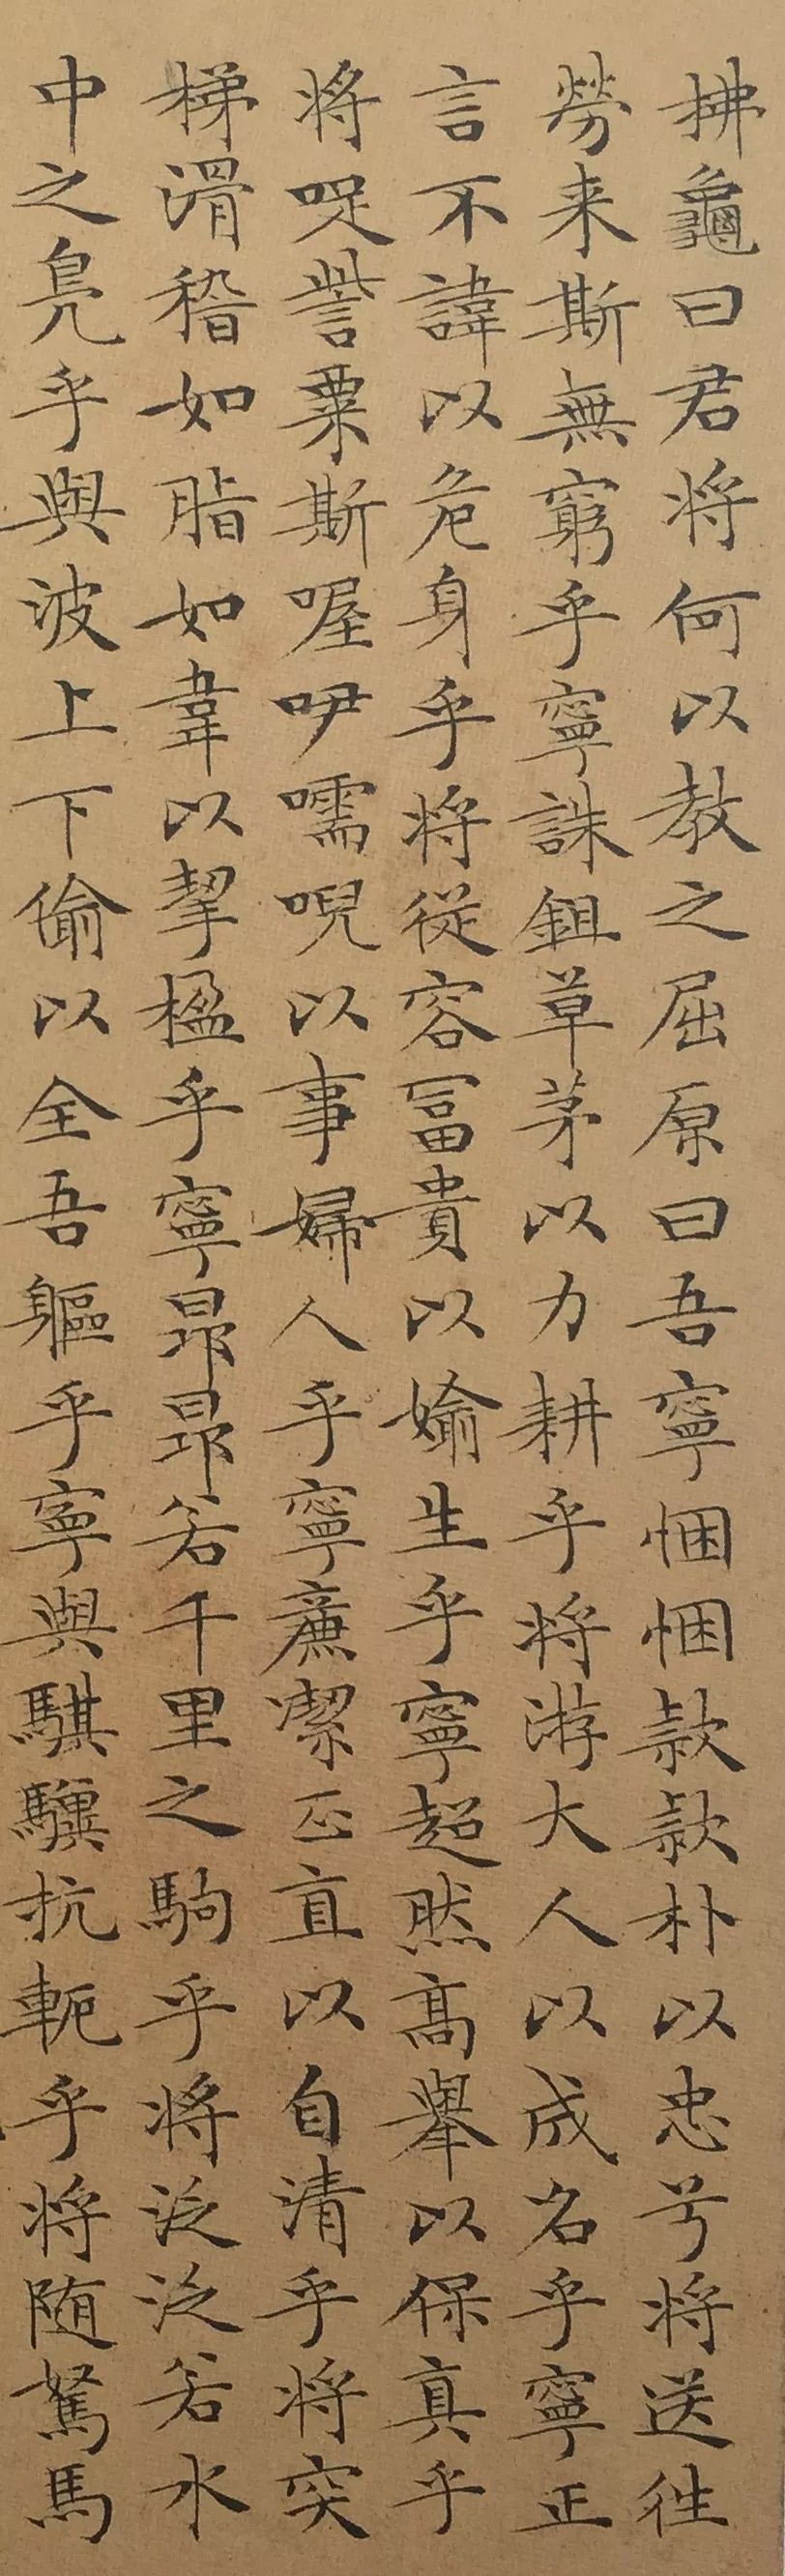 拂龜曰君將何以教之屈原曰吾寧悃悃款款朴以忠乎將送往
勞來斯無窮乎寧誅鉏草茅以力耕乎將游大人以成名乎寧正
言不諱以危身乎將從容富貴以媮生乎寧超然高舉以保真乎
將哫訾粟斯喔咿嚅唲以事婦人乎寧廉潔正直以自清乎將突
梯滑稽如脂如韋以挈楹乎寧昂昂若千里之駒乎將泛泛若水
中之鳧乎與波上下偷以全吾軀乎寧與騏驥抗軛乎將隨駑馬